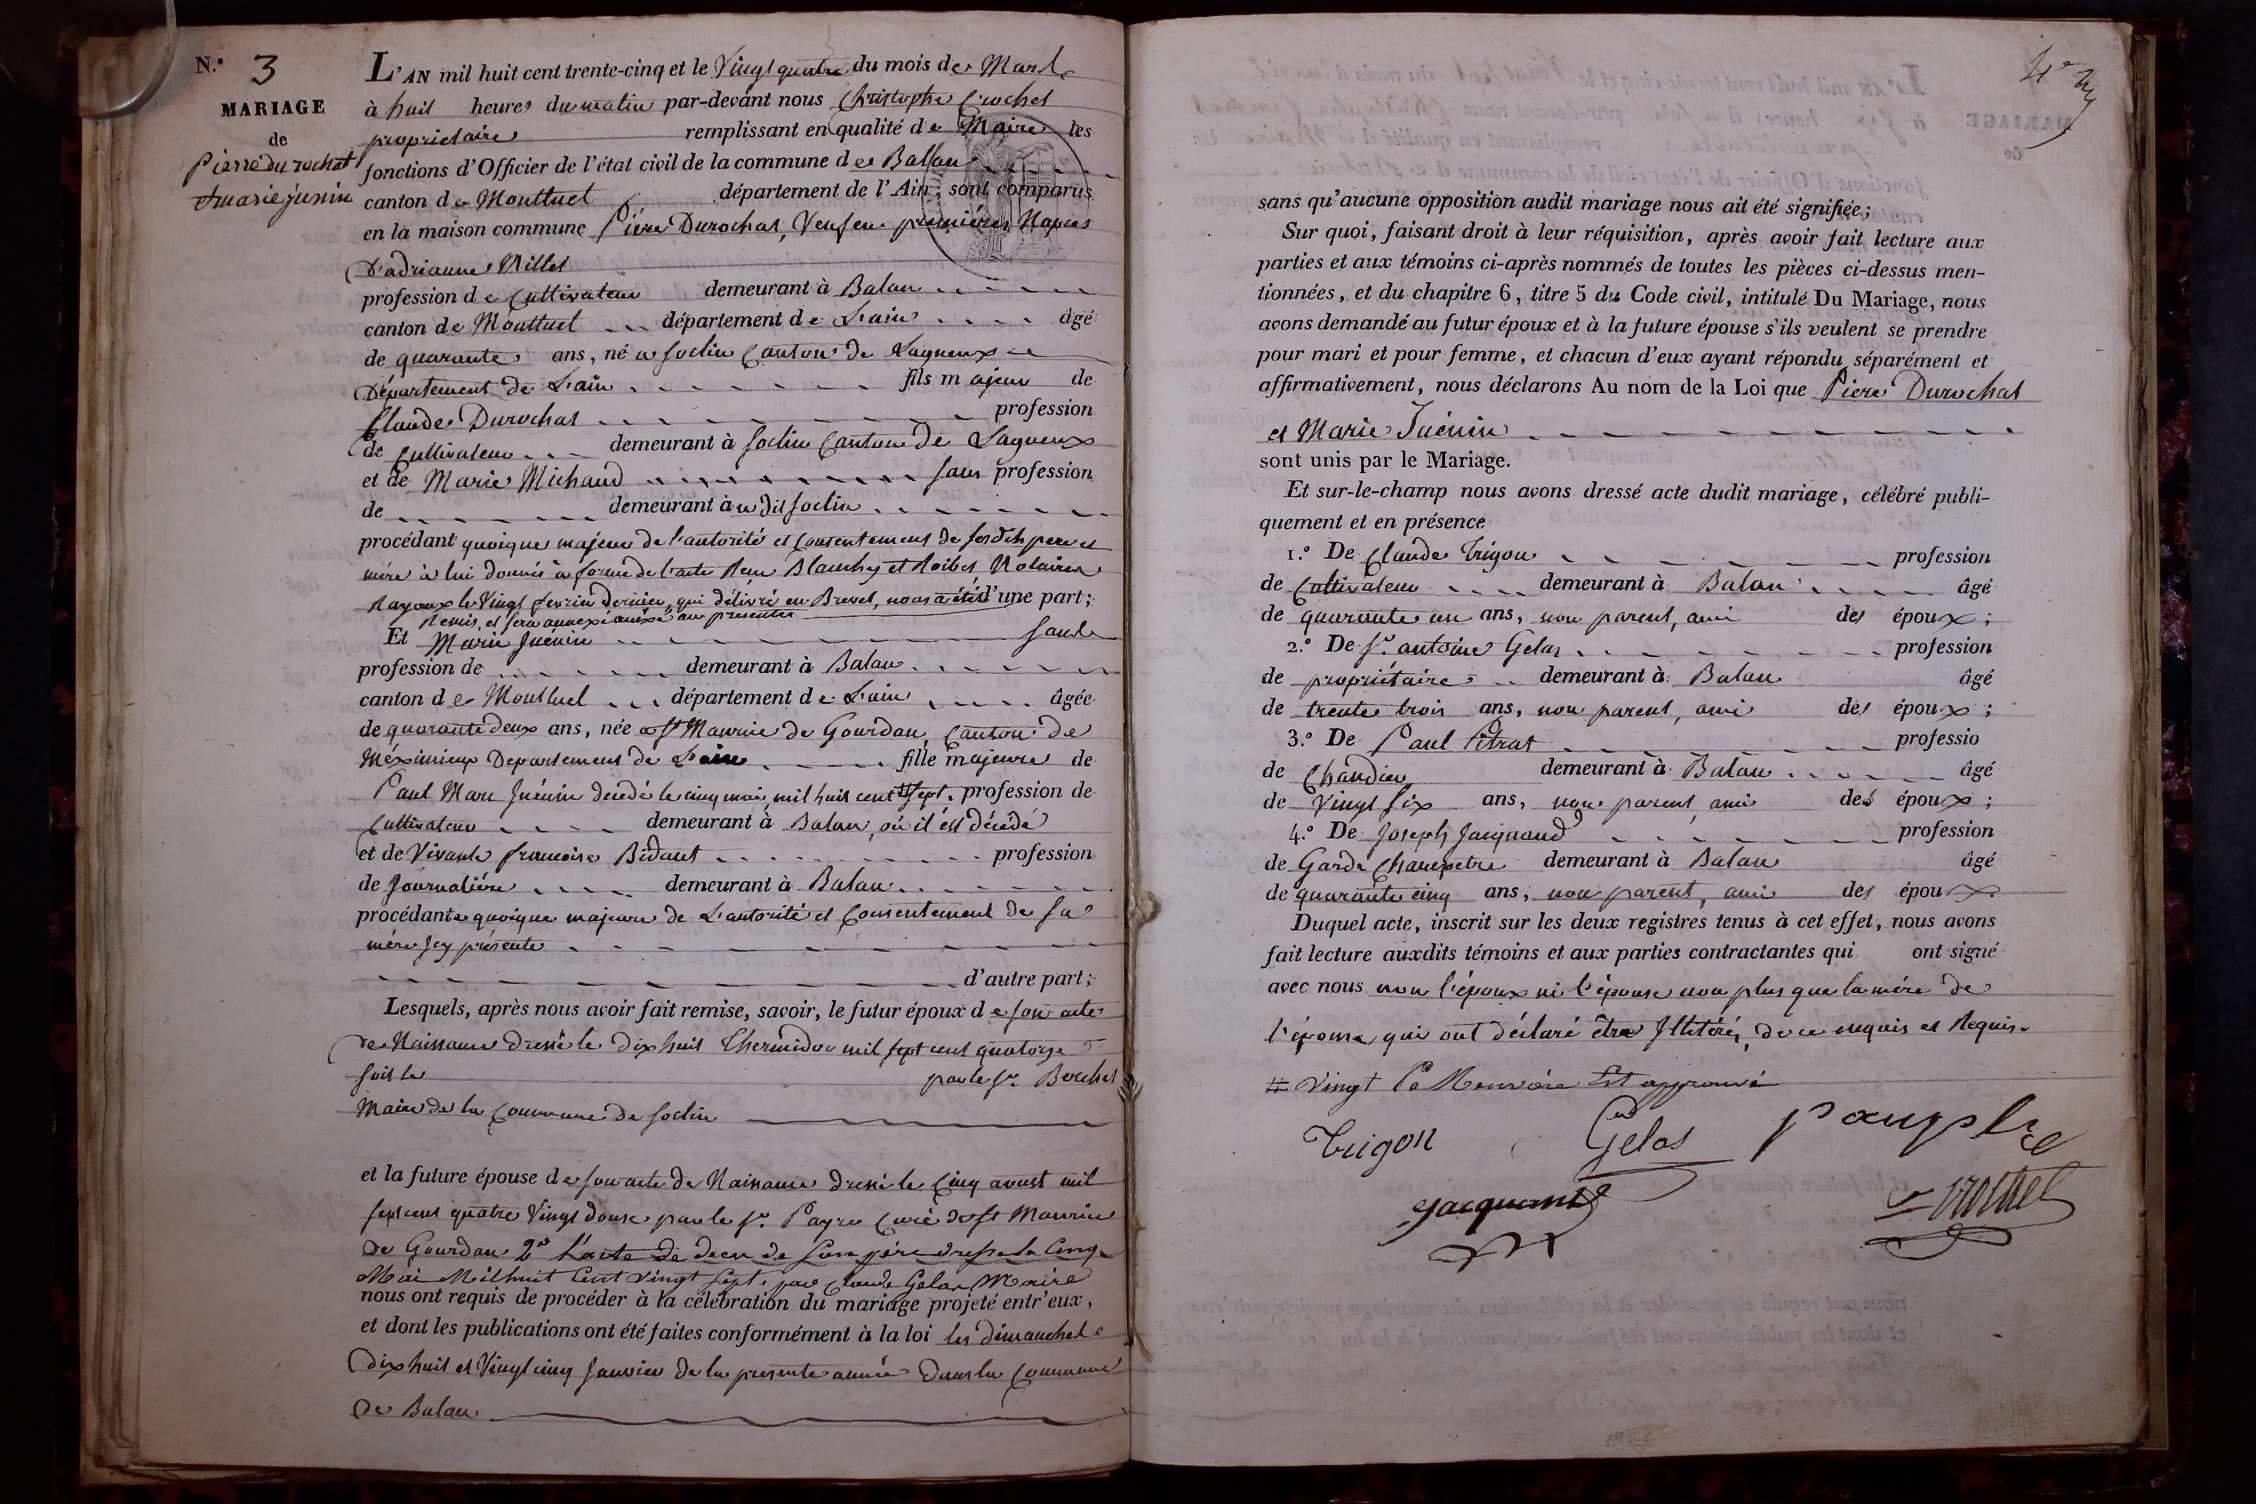 N.° 3
MARIAGE
de
Pierre Durochat
et marie juenin
L'AN mil huit cent trente-cinq et le Vingt quatre du mois de Mars
à huit heures du matin par-devant nous Christophe Crochet
proprietaire remplissant en qualité de Maire les
fonctions d'Officier de l'état civil de la commune de Balan
canton de Montluel département de l'Ain, sont comparus
en la maison commune Piere Durochat, Veuf en premières Noces
D'adrianne Millet
profession de Cultivateur demeurant à Balan
canton de Montluel département de L'ain âgé
de quarante ans, né a soclin Canton de Lagneux
Département de L'ain fils majeur de
Claude Durochat profession
de Cultivateur demeurant à soclin Canton de Lagneux
et de Marie Michaud sans profession
de demeurant à u dit soclin
procédant quoique majeur de l'autorité et Consentement de ses dits pere et
mère à lui donnés à forme de l'acte Blanchy et Notaires
le Vingt dernier, qui délivré en Brevet, nous a été d'une part;
Remis, et sera annexé au présentes
Et Marie Juénin sans
profession de demeurant à Balan
canton de Montluel département de L'ain âgée
de quarante deux ans, née a St Maurice de Gourdan, Canton de
Méximieux Departement de L'ain fille majeure de
Paul Marc Juénin décédé le cinq mai mil huit cent # sept. profession de
Cultivateur demeurant à Balan, où il est décédé
et de Vivante francoise Bidaut profession
de Journalière demeurant à Balan
procédante quoique majeure de L'autorité et Consentement de sa
mère Jcy présente
d'autre part;
Lesquels, après nous avoir fait remise, savoir, le futur époux de son acte
de Naissance dressé le dix huit Thermidor mil sept cent quatorze
soit le par le sr. Berchet
Maire de la Commune de soclin
et la future épouse de son acte de Naissance dressé le Cinq avust mil
sept cent quatre Vingt douze par le sr. Payre Curé de St Maurice
de Gourdan 2° L'acte de deces de son père dressé le Cinq
Mai Mil huit Cent vingt sept. par Claude Gelas Maire
nous ont requis de procéder à la célébration du mariage projeté entr'eux,
et dont les publications ont été faites conformément à la loi les dimanches
dix huit et Vingt cinq Janvier de la presente année dans la Commune
de Balan
sans qu'aucune opposition audit mariage nous ait été signifiée;
Sur quoi, faisant droit à leur réquisition, après avoir fait lecture aux
parties et aux témoins ci-après nommés de toutes les pièces ci-dessus men-
tionnées, et du chapitre 6, titre 5 du Code civil, intitulé Du Mariage, nous
avons demandé au futur époux et à la future épouse s'ils veulent se prendre
pour mari et pour femme, et chacun d'eux ayant répondu séparément et
affirmativement, nous déclarons Au nom de la Loi que Piere Durochat
et Marie Juénin
sont unis par le Mariage.
Et sur-le-champ nous avons dressé acte dudit mariage, célébré publi-
quement et en présence
1.° De Claude Trigon profession
de Cultivateur demeurant à Balan âgé
de quarante un ans, non parent, ami des époux;
2.° De sr. antoine Gelas profession
de propriétaire demeurant à Balan âgé
de trente trois ans, non parent, ami des époux;
3.° De Paul Pitrat professio
de demeurant à Balan âgé
de Vingt six ans, non parent, ami des époux;
4.° De Joseph Jacquand profession
de Garde Champetre demeurant à Balan âgé
de quarante cinq ans, non parent, ami des époux
Duquel acte, inscrit sur les deux registres tenus à cet effet, nous avons
fait lecture auxdits témoins et aux parties contractantes qui ont signé
avec nous non l'époux ni l'épouse non plus que la mére de
l'épouse, qui ont déclaré être Jllitérés, de ce enquis et Requis.
# Vingt Le Renvoie Est approuvé
Trigon Gelas
Jacquand Crochet